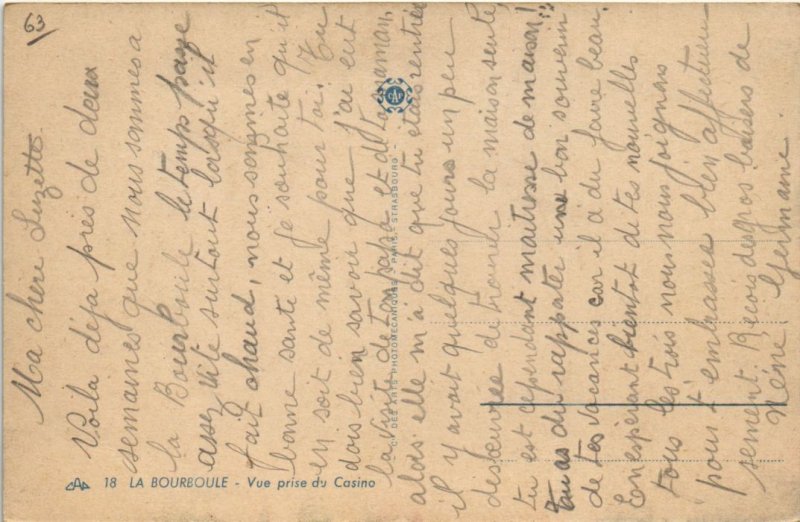 63
Ma chère Luzette
Voilà déjà près de deux
semaines que nous sommes a
la Bourboule le temps passe
assez vite surtout lorsqu'il
fait chaud, nous sommes en
bonne santé et je souhaite qu'il
en soit de même pour toi. Tu
dois bien savoir que j'ai eut
la visite de ton papa et de ta maman,
alors elle m'a dit que tu étais rentrée
il y avait quelques jours un peu
desœuvrée de trouver la maison seule,
tu est cependant maitresse de maison!!
Tu as du rapporter une bon souvenir
de tes vacances car il a du faire beau.
En espérant bientot de tes nouvelles
tous les trois nous nous joignons
pour t'embrasser bien affectueu
sement. Reçois des gros baisers de
Néné Germaine
CAP
CIE DES ARTS PHOTOMECANIQUES - PARIS - STRASBOURG -
CAP 18 LA BOURBOULE - Vue prise du Casino